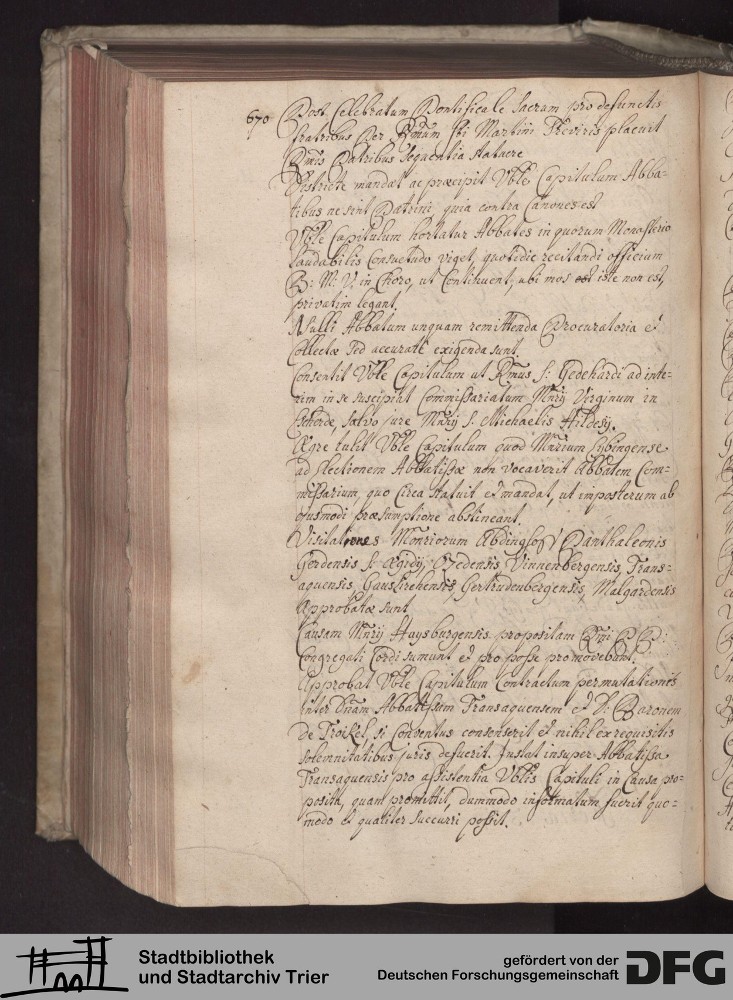 670 Post Celebratum Pontificale Sacrum pro defunctis
fratribus per Rmum Sti Martini Treviris placuit
Rmis Patribus sequentia statuere
Districte mandat ac præcipit Vble Capitulum Abba=
tibus ne sint Patrini quia contra Canones est
Vble Capitulum hortatur Abbates in quorum Monasterio
laudabilis Consuetudo viget, quotidie recitandi officium
B: M: V. in Choro, ut Continuent, ubi mos iste non est,
privatim legant.
Nulli Abbatum unquam remittenda Procuratoria et
Collectæ sed accuratè exigenda sunt.
Consentit Vble Capitulum ut Rmus S: Godehardi ad inte=
rim in se suscipiat Commissariatum Mnrij Virginum in
Escherde, salvo jure Mnrij S. Michaelis Hildesij.
Ægre tulit Vble Capitulum quod Mnrium
ad Electionem Abbatissæ non vocaverit Abbatem Com=
missarium, quo Circa statuit et mandat, ut imposterum ab
ejusmodi præsumptione abstineant.
Visitationes Monriorum Abdinghof, Panthaleonis
Gerdensis S: Ægidij, Vinnenbergensis, Trans=
aquensis Gertrudenbergensis, Malgardensis
Approbatæ sunt
Causam Mnrij Haysburgensis propositam Rmi P P:
Congregati Cordi sumunt et pro posse promovebunt.
Approbat Vble Capitulum Contractum permutationis
inter Dnam Abbatissam Transaquensem et D: Baronem
de Troikel, si Conventus consenserit et nihil ex requisitis
solemnitatibus juris defuerit. Instat insuper Abbatissa
Transaquensis pro assistentia Vblis Capituli in Causa pro=
posita, quam promittit, dummodo informatum fuerit quo=
modo et qualiter succurri possit.
Stadtbibliothek
und Stadtarchiv Trier
gefördert von der
Deutschen Forschungsgemeinschaft
DFG